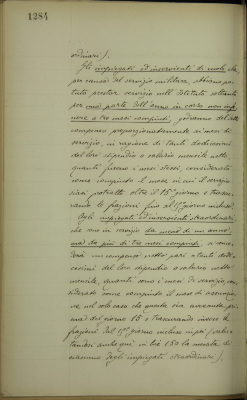 1284
ordinari).
Gli impiegati ed inservienti di ruolo che
per causa del servizio militare, abbiano po-
tuto prestar servizio nell'Istituto soltanto
per una parte dell'anno in corso non infe-
riore a tre mesi compiuti, godranno del
compenso proporzionatamente ai mesi di
servizio, in ragione di tanti dodicesimi
del loro stipendio o salario mensile netto
quanti furono i mesi stessi, considerato
come compiuto il mese in cui il servizio
siasi protratto oltre il 15° giorno e trascu-
rando le frazioni fino al 15° giorno incluso.
Agli impiegati ed inservienti straordinari
che sono in servizio da meno di un anno,
ma da più di tre mesi compiuti, si conce-
derà un compenso netto pari a tanti dodi-
cesimi del loro stipendio o salario netto
mensile, quanti sono i mesi di servizio, con-
siderando come compiuto il mese di assunzio-
ne nel solo caso che questa sia avvenuta pri-
ma del giorno 15 e trascurando invece le
frazioni dal 15° giorno incluso in più (
anche qui in lire 150 la
ciascuno degli impiegati straordinari).